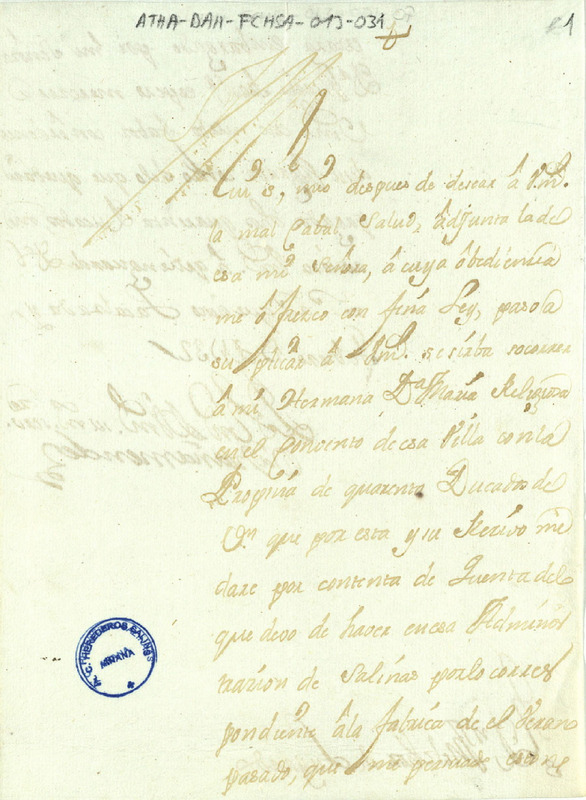 ATHA-DAH-FCHSA-013-031
21
Mui s.r mio despues de desear â V.m.
la mas Cabal Salud, âdjunta la de
esa mi Señora, â cuya ôbediencia
me ôfrezco con fina Ley, paso la
suplica â Vmd. se sirba socorrer
â mi Hermana D.a Maria Religiosa
en el Convento de esa Villa con la
Propina de quarenta Ducados de
V.n que por esta y su Recivo me
dare por contenta de Quenta del
que devo de haver en esa Adminis
trazion de Salinas por lo corres
pondiente âla fabrica de el Verano
pasado, que me persuado
R.C. HEREDEROS SALINAS
AÑANA